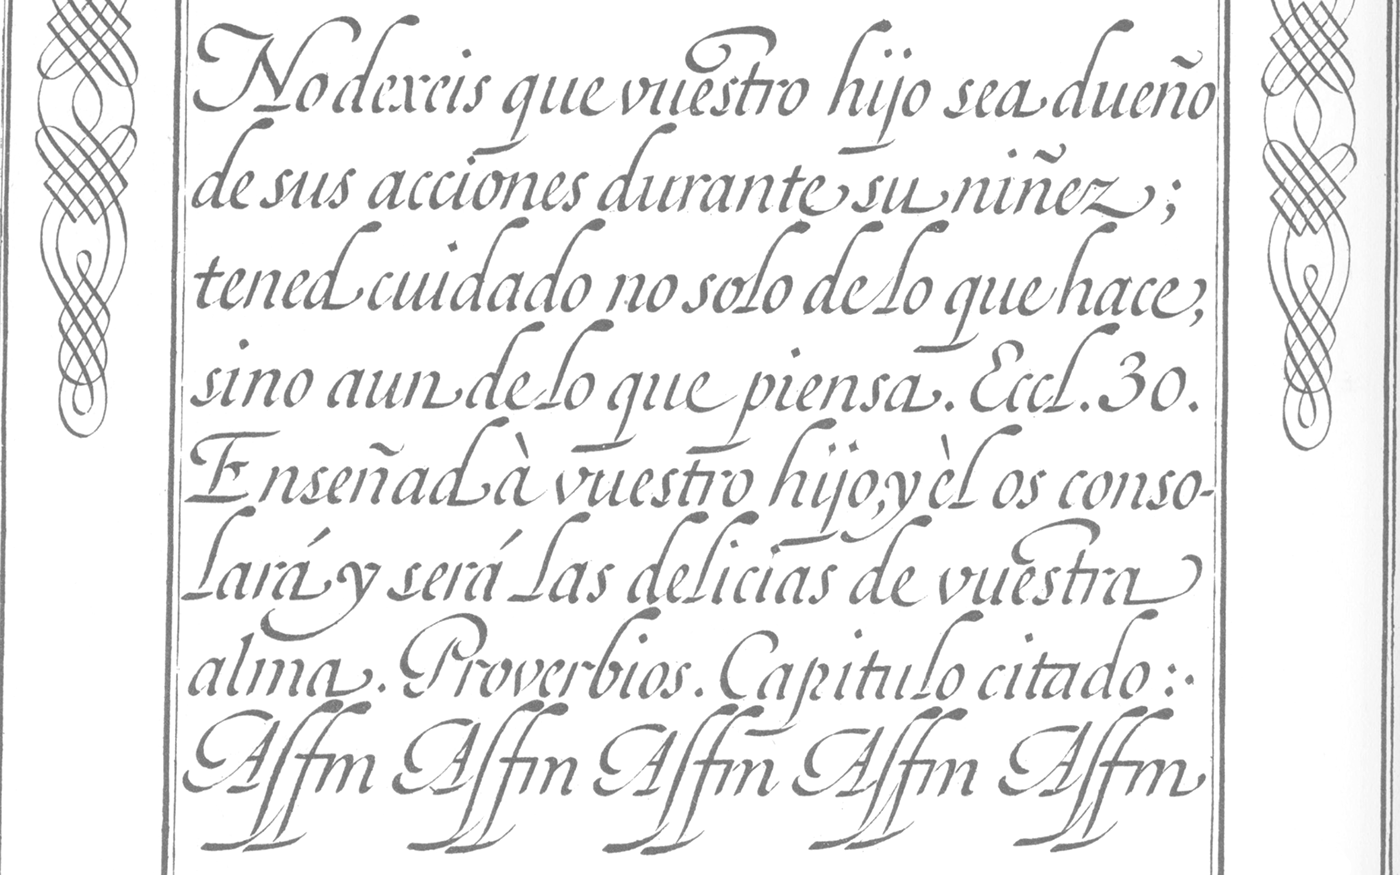 No dexeis que vuestro hijo sea dueño
de sus acciones durante su niñez;
tened cuidado no solo de lo que hace,
sino aun de lo que piensa. Eccl. 30.
Enseñad à vuestro hijo, y èl os conso-
lará y será las delicias de vuestra
alma. Proverbios. Capitulo citado :·
Aſfm Aſfm Aſfm Aſfm Aſfm